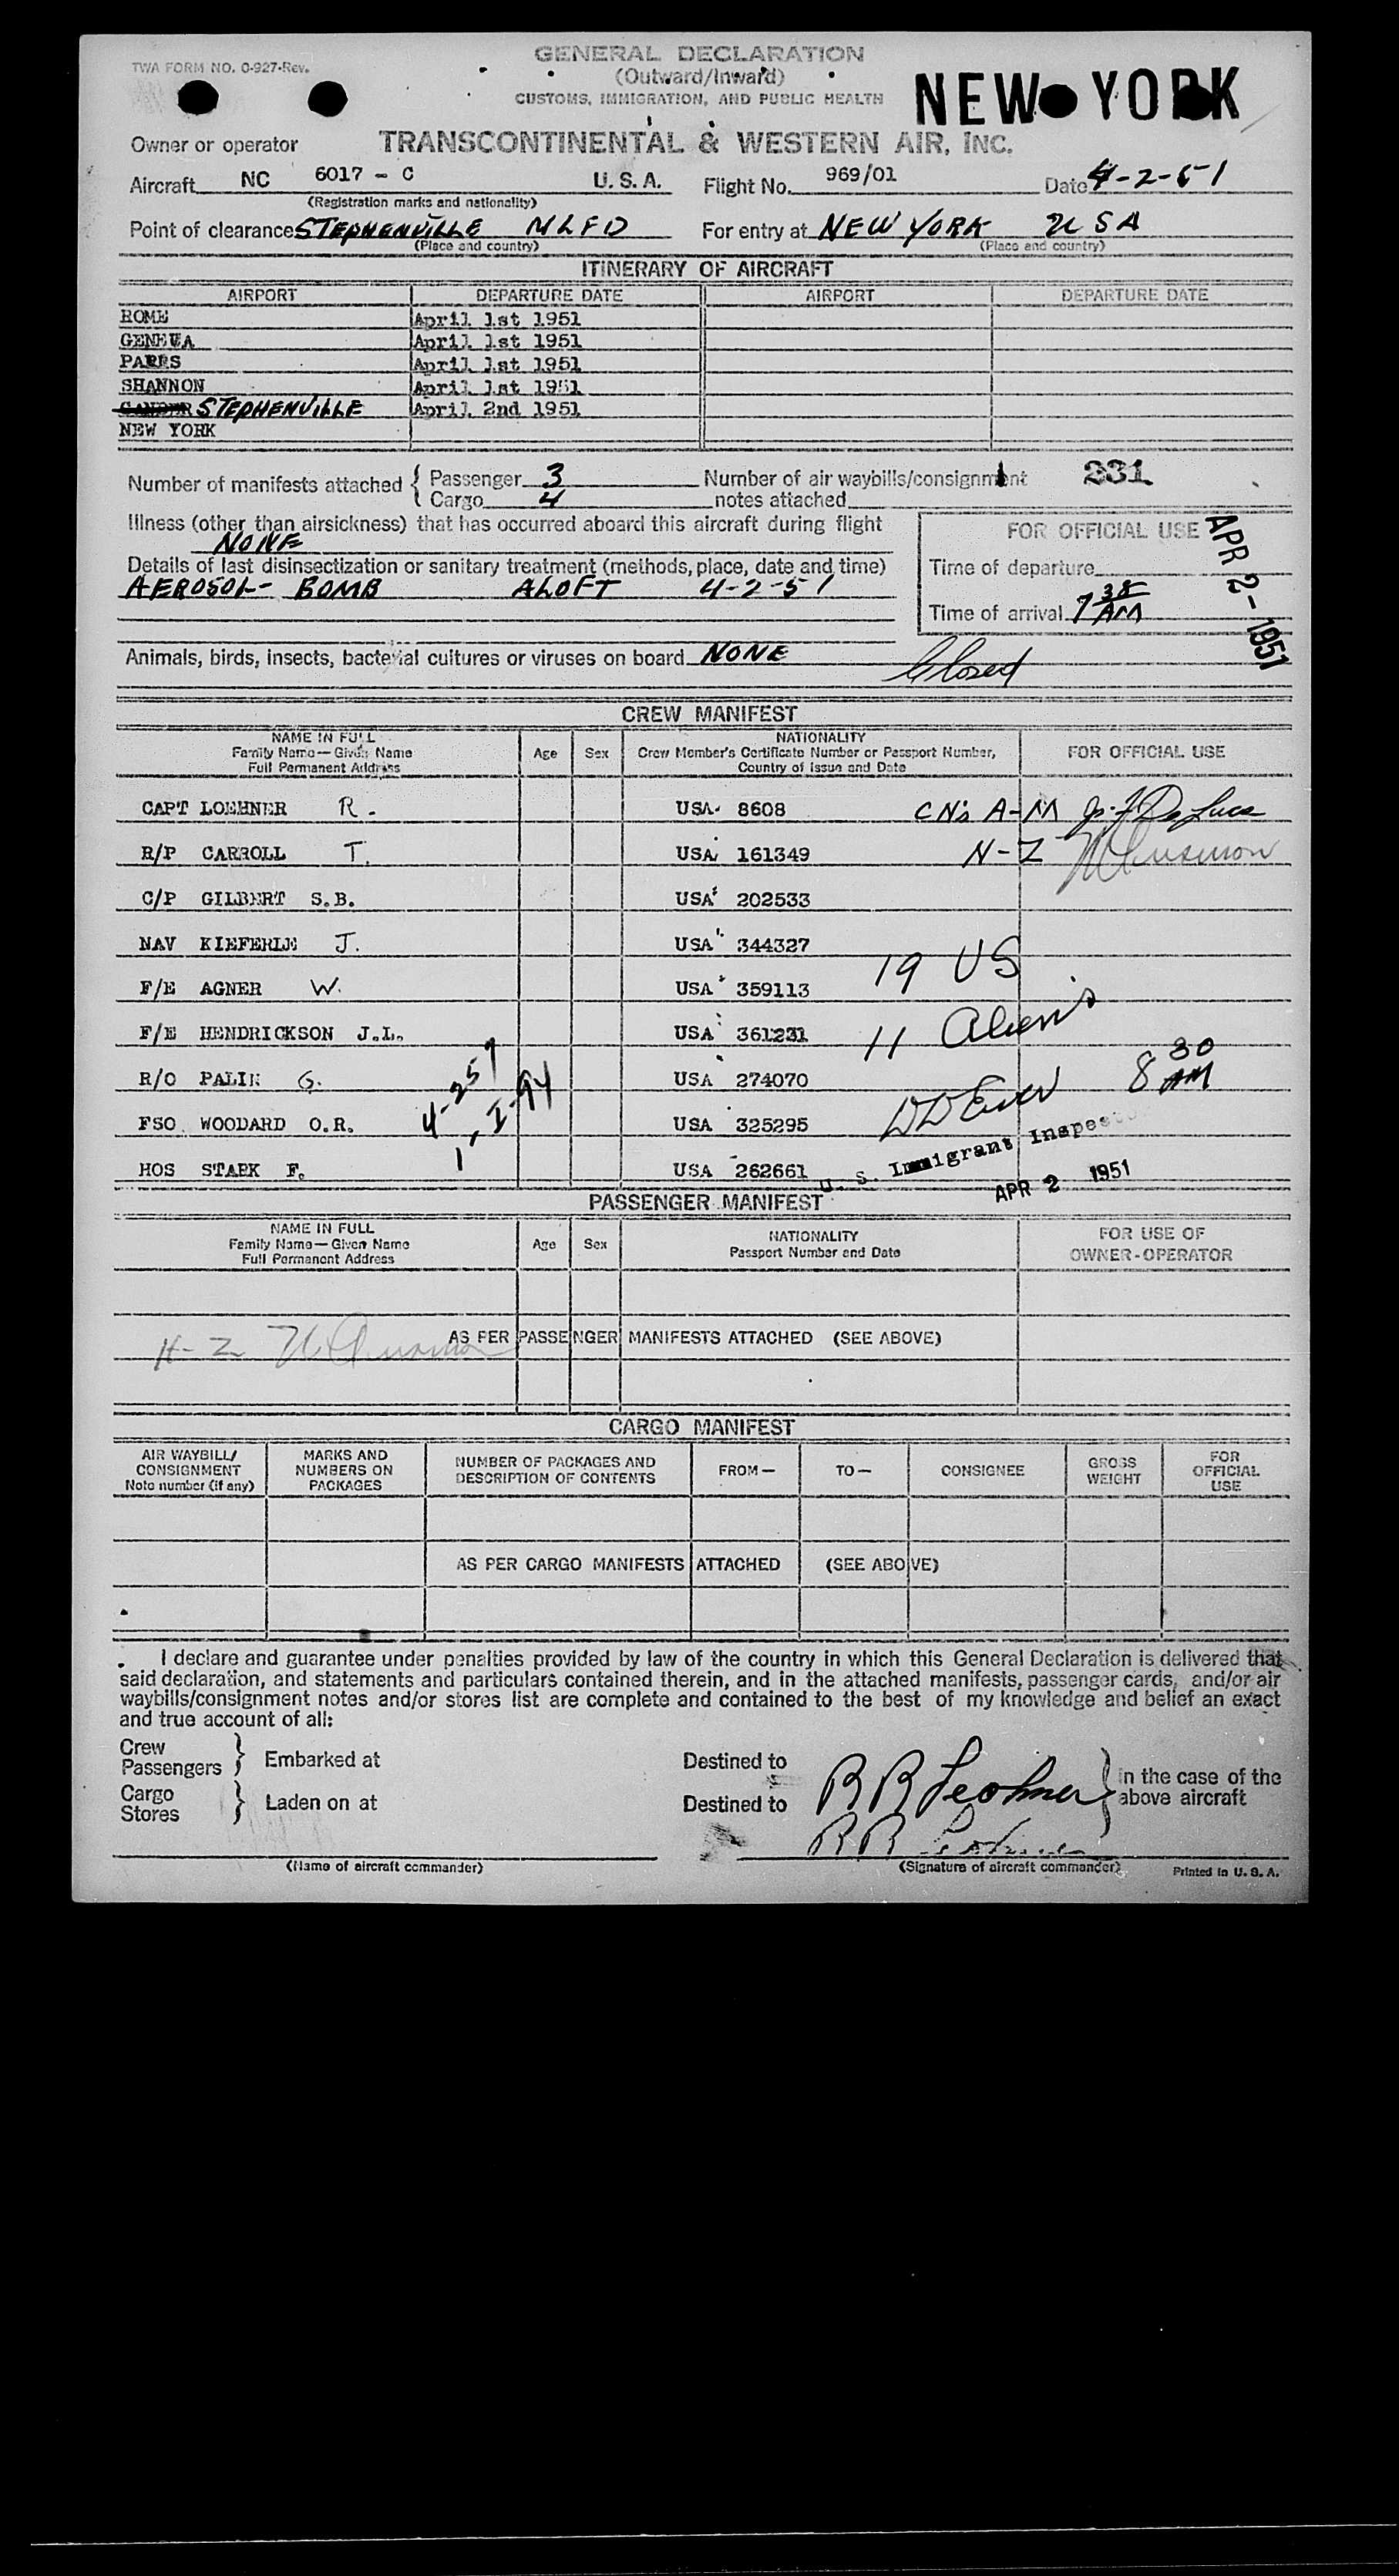 TWA FORM NO. O-927-Rev.
GENERAL DECLARATION
(Outward/Inward)
CUSTOMS, IMMIGRATION, AND PUBLIC HEALTH
NEW YORK
Owner or operator TRANSCONTINENTAL & WESTERN AIR, INC.
Aircraft NC 6017 - C U. S. A. Flight No. 969/01 Date 4-2-51
(Registration marks and nationality)
Point of clearance STEPHENVILLE NLFD For entry at NEW YORK USA
(Place and country) (Place and country)
ITINERARY OF AIRCRAFT
AIRPORT DEPARTURE DATE AIRPORT DEPARTURE DATE
ROME April 1st 1951
GENEVA April 1st 1951
PARIS April 1st 1951
SHANNON April 1st 1951
GANDER STEPHENVILLE April 2nd 1951
NEW YORK
Number of manifests attached { Passenger 3 Number of air waybills/consignment 231
Cargo 4 notes attached
Illness (other than airsickness) that has occurred aboard this aircraft during flight
NONE
FOR OFFICIAL USE
APR 2-1951
Details of last disinsectization or sanitary treatment (methods, place, date and time)
AEROSOL- BOMB ALOFT 4-2-51
Time of departure
Time of arrival 7 38 AM
Animals, birds, insects, bacterial cultures or viruses on board NONE
Closed
CREW MANIFEST
NAME IN FULL
Family Name—Given Name
Full Permanent Address
Age Sex
NATIONALITY
Crew Member's Certificate Number or Passport Number,
Country of Issue and Date
FOR OFFICIAL USE
CAPT LOEHNER R. USA 8608 CN's A-M
R/P CARROLL T. USA 161349 N-Z
C/P GILBERT S.B. USA 202533
NAV KIEFERLE J. USA 344327
19 US
F/E AGNER W. USA 359113
F/E HENDRICKSON J.L. USA 361231 11 Aliens
R/O PALIK G. USA 274070 8 30 AM
4-2-51
1, I-94
FSO WOODARD O.R. USA 325295
HOS STARK F. USA 262661
U. S. Immigrant Inspector
APR 2 1951
PASSENGER MANIFEST
NAME IN FULL
Family Name—Given Name
Full Permanent Address
Age Sex
NATIONALITY
Passport Number and Date
FOR USE OF
OWNER-OPERATOR
AS PER PASSENGER MANIFESTS ATTACHED (SEE ABOVE)
CARGO MANIFEST
AIR WAYBILL/
CONSIGNMENT
Note number (if any)
MARKS AND
NUMBERS ON
PACKAGES
NUMBER OF PACKAGES AND
DESCRIPTION OF CONTENTS
FROM—
TO—
CONSIGNEE
GROSS
WEIGHT
FOR
OFFICIAL
USE
AS PER CARGO MANIFESTS ATTACHED (SEE ABOVE)
I declare and guarantee under penalties provided by law of the country in which this General Declaration is delivered that
said declaration, and statements and particulars contained therein, and in the attached manifests, passenger cards, and/or air
waybills/consignment notes and/or stores list are complete and contained to the best of my knowledge and belief an exact
and true account of all:
Crew
Passengers } Embarked at Destined to
Cargo
Stores } Laden on at Destined to
R R Leohner
} in the case of the
above aircraft
R R
(Name of aircraft commander) (Signature of aircraft commander) Printed in U. S. A.